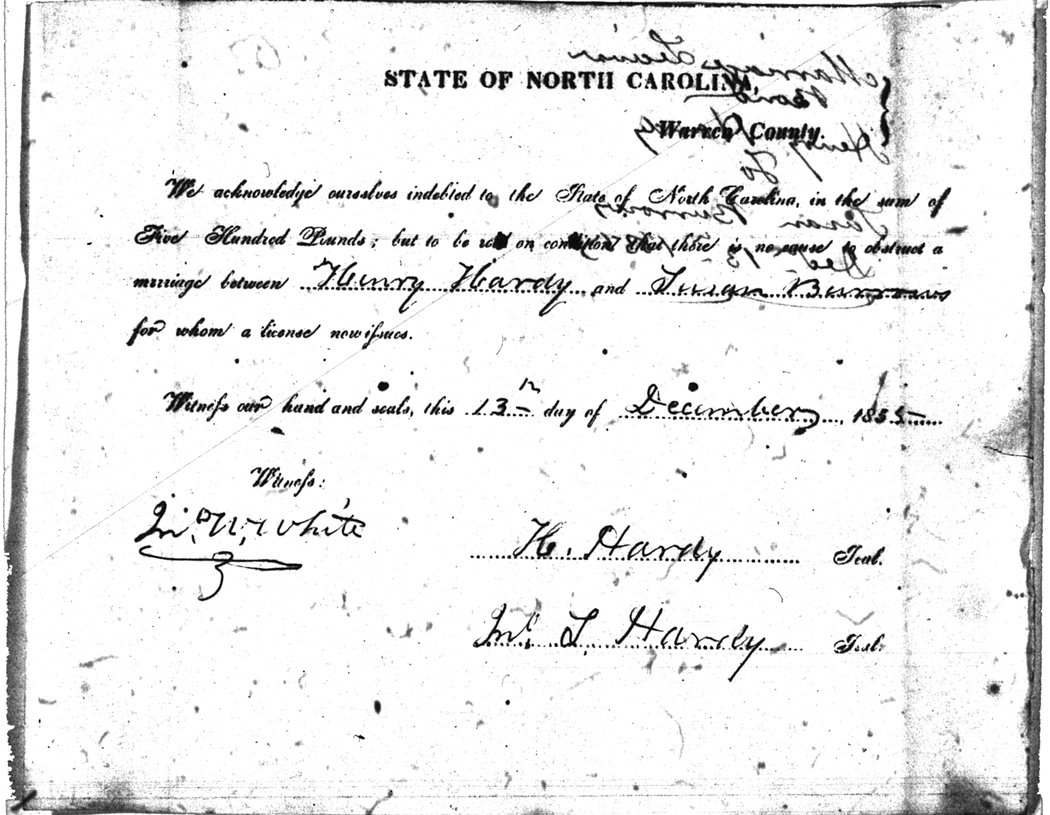 STATE OF NORTH CAROLINA,
Warren County.
We acknowledge ourselves indebted to the State of North Carolina, in the sum of
Five Hundred Pounds; but to be void on condition that there is no cause to obstruct a
marriage between Henry Hardy and Susan Burrows
for whom a license now issues.
Witness our hand and seals, this 13th day of December, 1855
Witness:
Jno. W. White
H. Hardy Seal.
Jno. L. Hardy Seal.
Marriage License
Bond
Henry Hardy
To
Susan Burrows
Dec. 13